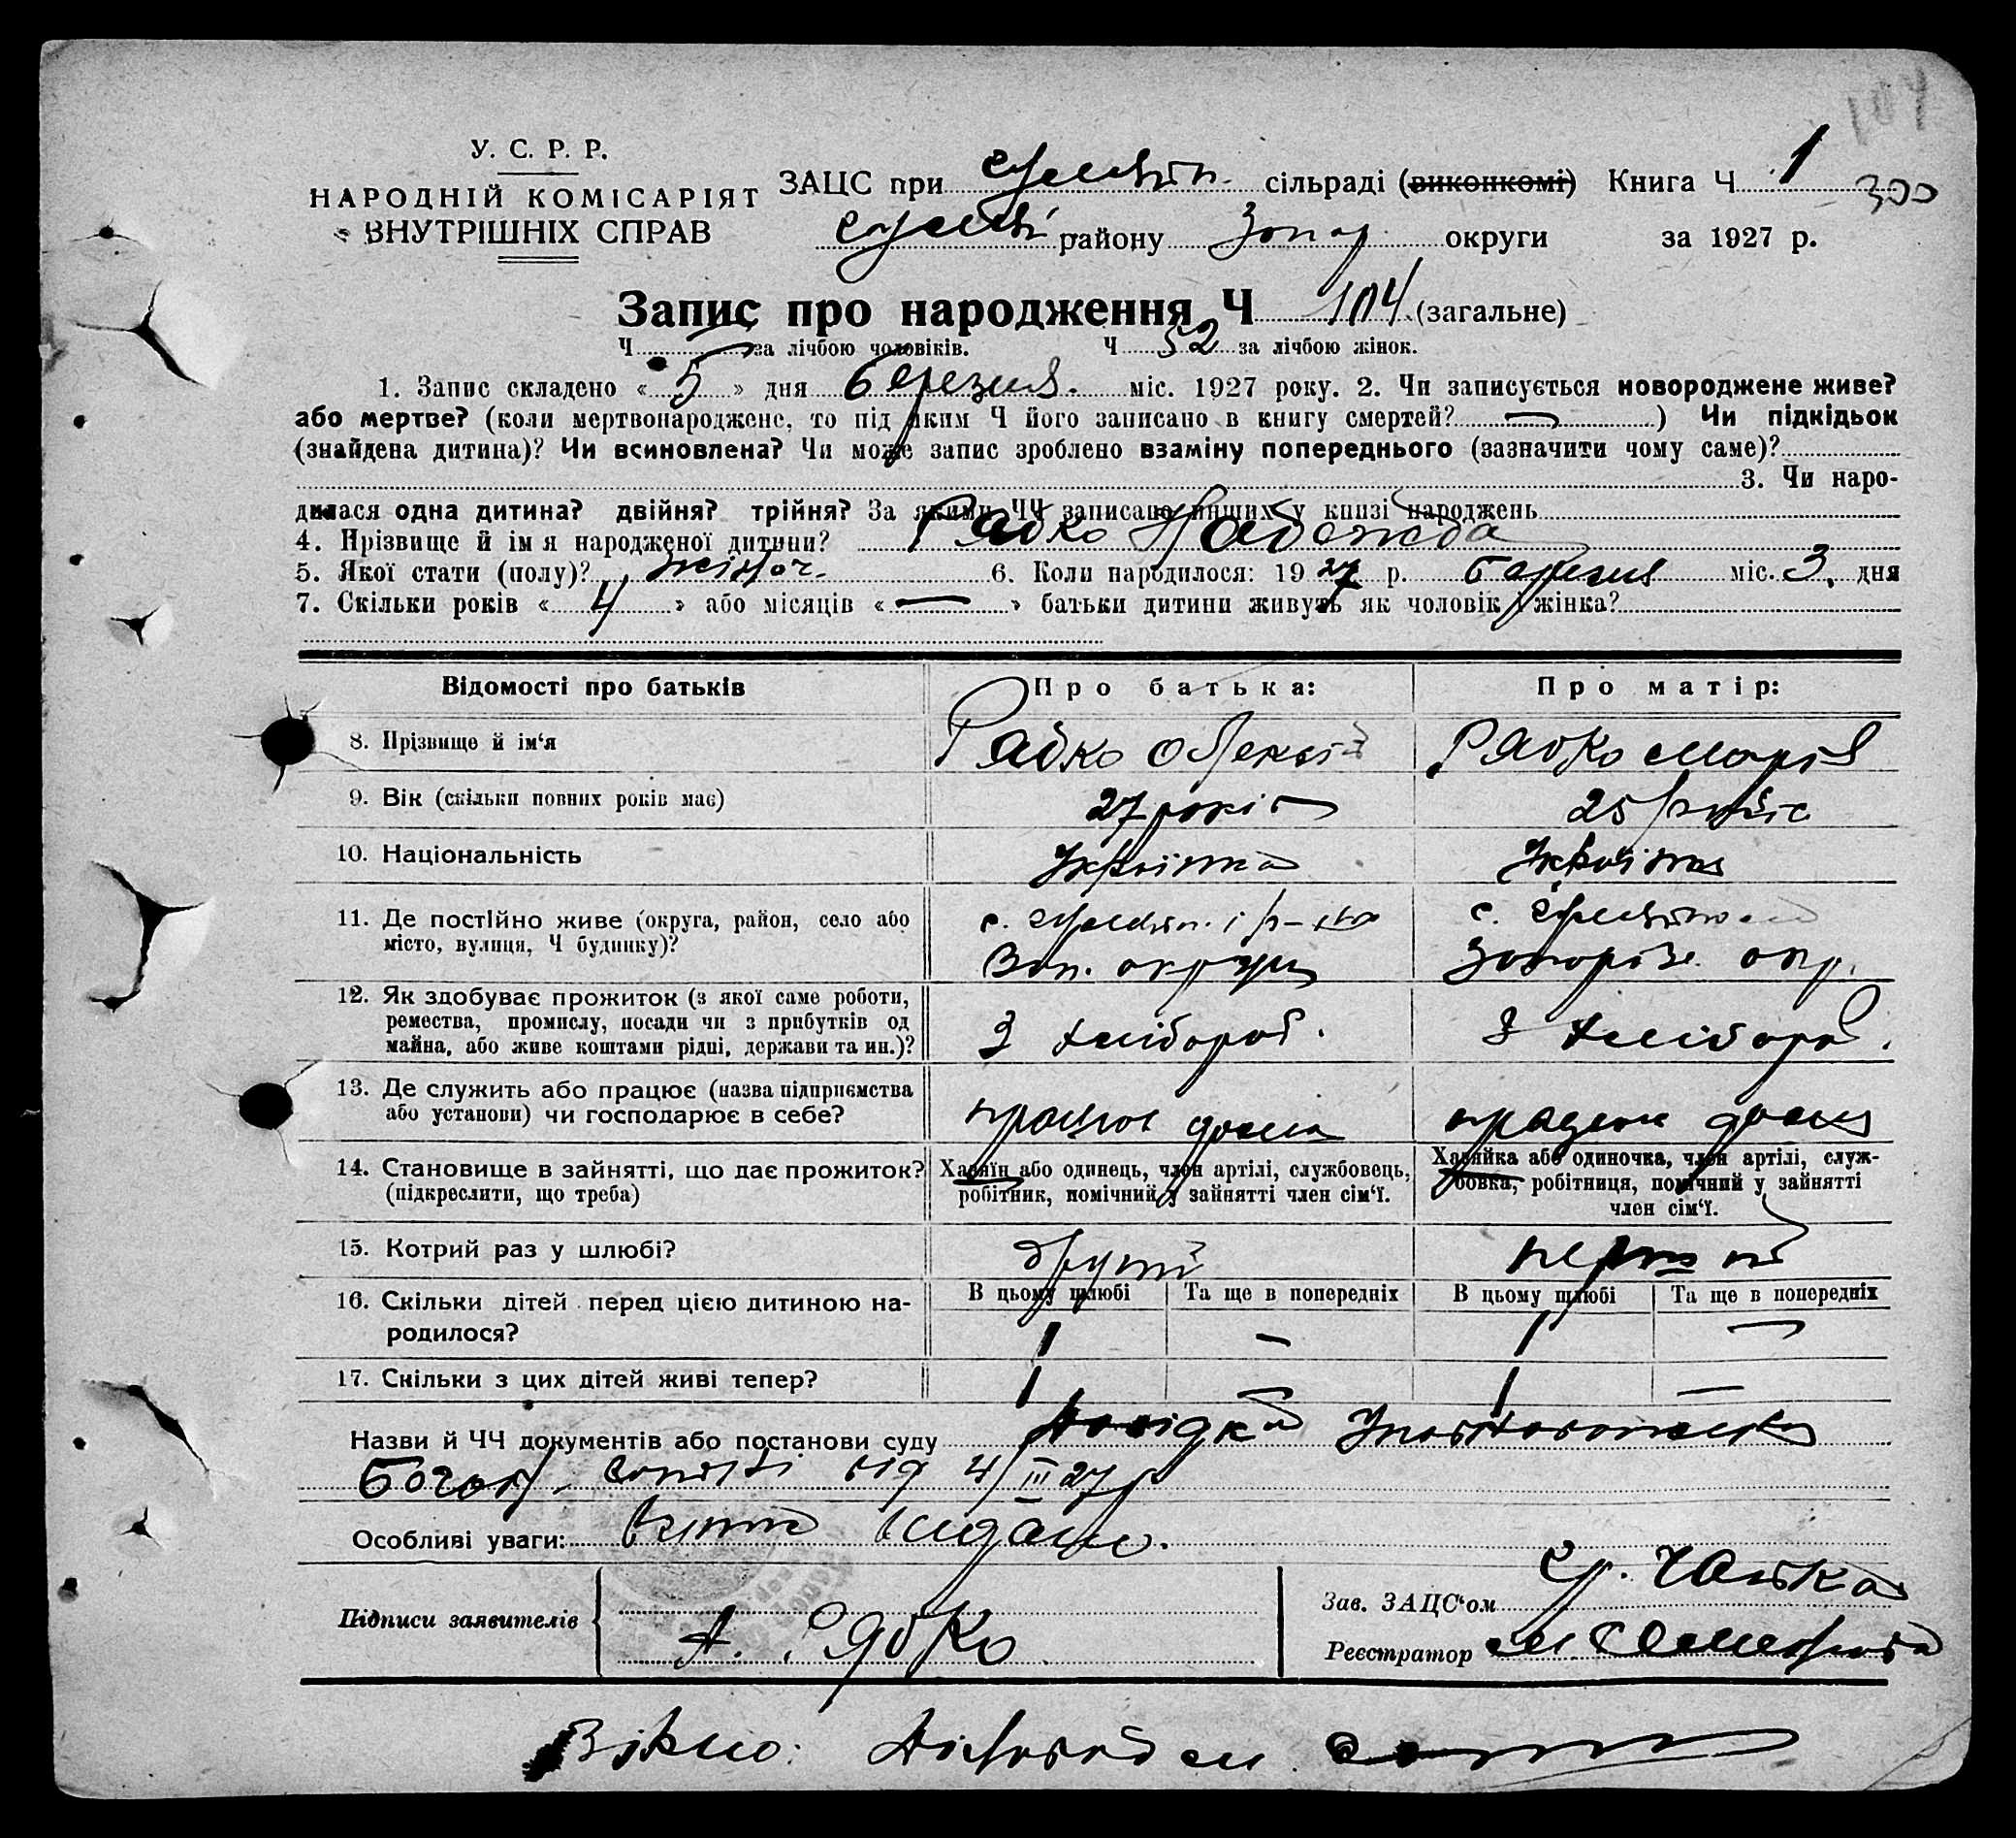 104
У. С. Р. Р.
НАРОДНІЙ КОМІСАРІЯТ
ВНУТРІШНІХ СПРАВ
ЗАЦС при сільраді (виконкомі) Книга Ч 1
300
району Запор округи за 1927 р.
Запис про народження Ч 104 (загальне)
Ч за лічбою чоловіків. Ч 52 за лічбою жінок.
1. Запис складено « 5 » дня березня міс. 1927 року. 2. Чи записується новороджене живе?
або мертве? (коли мертвонароджене, то під яким Ч його записано в книгу смертей? — ) Чи підкідьок
(знайдена дитина)? Чи всиновлена? Чи може запис зроблено взаміну попереднього (зазначити чому саме)?
3. Чи наро-
дилася одна дитина? двійня? трійня? За якими ЧЧ записано инших у книзі народжень
4. Прізвище й ім я народженої дитини? Рабко Надежда
5. Якої стати (полу)? жіноч. 6. Коли народилося: 19 27 р. березня міс. 3. дня
7. Скільки років « 4 » або місяців « — » батьки дитини живуть як чоловік і жінка?
Відомості про батьків Про батька: Про матір:
8. Прізвище й ім'я Рабко Олексій Рабко Марія
9. Вік (скільки повних років має) 27 років 25 років
10. Національність
11. Де постійно живе (округа, район, село або
місто, вулиця, Ч будинку)?
с. с.
Зап. округи Запорізь. окр.
12. Як здобуває прожиток (з якої саме роботи,
ремества, промислу, посади чи з прибутків од
майна, або живе коштами рідні, держави та ин.)?
З хлібороб. З хлібороб.
13. Де служить або працює (назва підприємства
або установи) чи господарює в себе?
працює дома працює дома
14. Становище в зайнятті, що дає прожиток?
(підкреслити, що треба)
Хазяїн або одинець, член артілі, службовець,
робітник, помічний у зайнятті член сім'ї.
Хазяйка або одиночка, член артілі, служ-
бовка, робітниця, помічний у зайнятті
член сім'ї.
15. Котрий раз у шлюбі? другий перший
16. Скільки дітей перед цією дитиною на-
родилося?
В цьому шлюбі Та ще в попередніх В цьому шлюбі Та ще в попередніх
1 — 1 —
17. Скільки з цих дітей живі тепер? 1 — 1 —
Назви й ЧЧ документів або постанови суду Довідка
від 4/III 27 р
Особливі уваги: видано.
Підписи заявителів А. Рябко
Зав. ЗАЦС'ом
Реєстратор
Вірно: